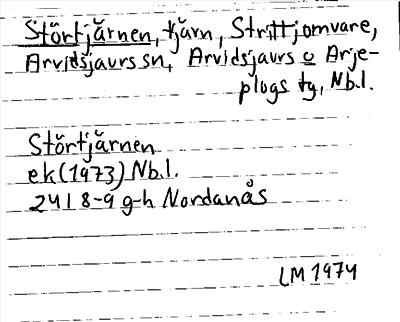 Störtjärnen, tjärn, Strittjomvare,
Arvidsjaurs sn, Arvidsjaurs o Arje-
plogs tg, Nb.l.
Störtjärnen
ek (1973) Nb.l.
24I 8-9 g-h Nordanås
LM 1974